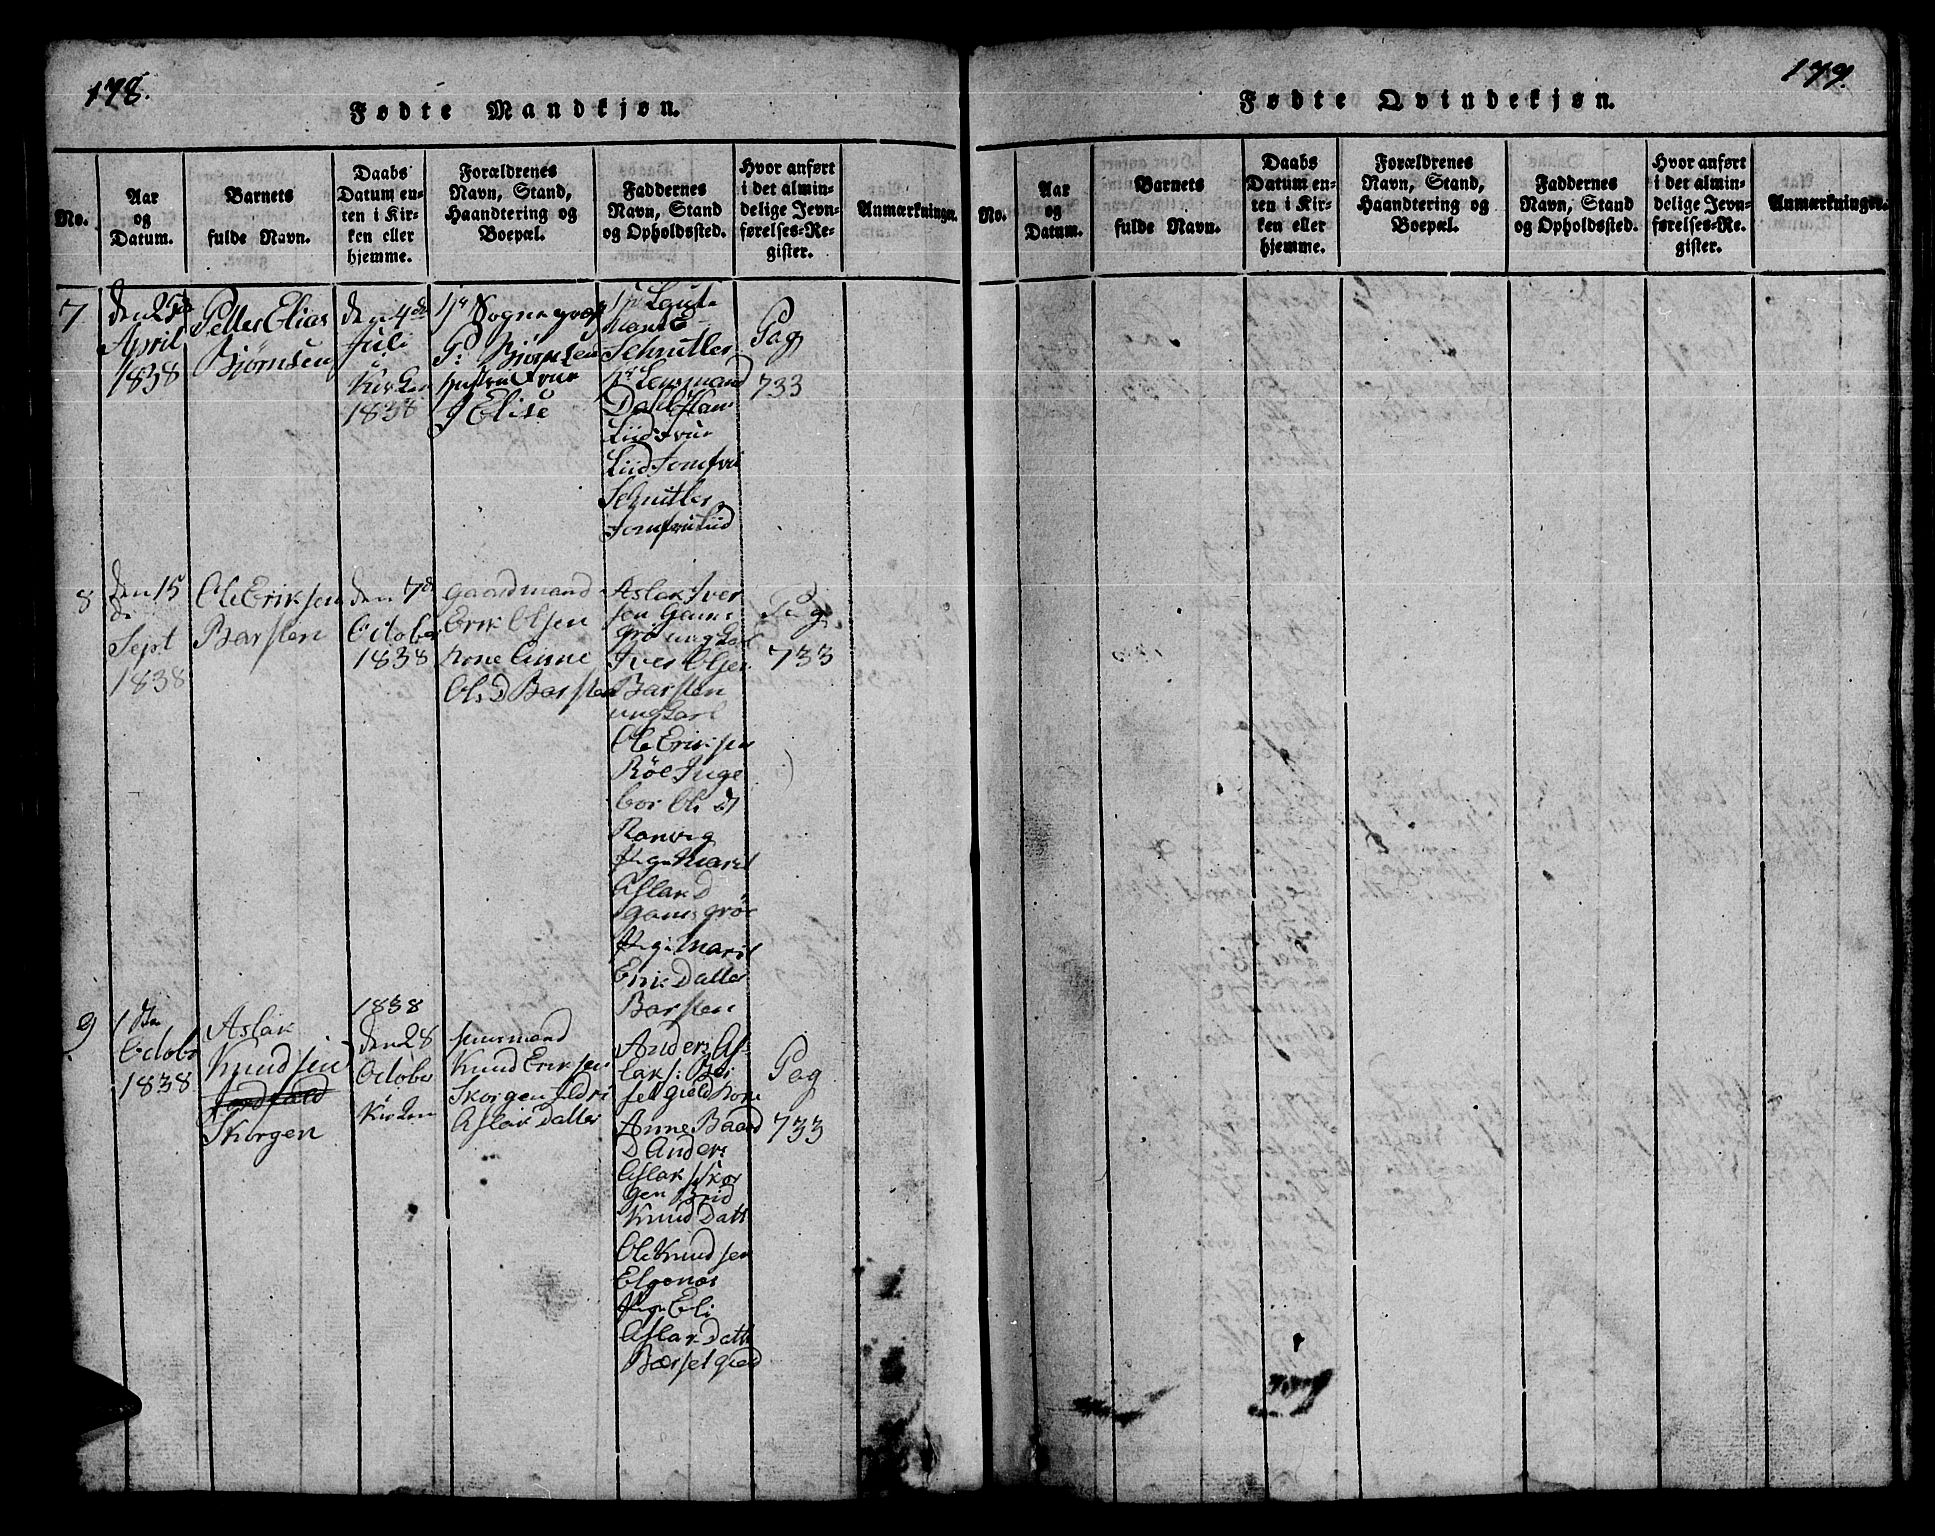 178.
Fødte Mandkjøn.
No.
Aar
og
Datum.
Barnets
fulde Navn.
Daabs
Datum en-
ten i Kir-
ken eller
hjemme.
Forældrenes
Navn, Stand,
Haandtering og
Boepæl.
Faddernes
Navn, Stand
og Opholdssted.
Hvor anført
i det almin-
delige Jevn-
førelses-Re-
gister.
Anmærkninger.
7
den 25de
April
1838
Petter Elias
Bjørnsen
den 4de
Juli
Kirken
1838
Hr Sognepræst
P: Bjørnsen
Hustru Frue
J Elise
Hr Leut-
nant
Schnitler
Hr Lensmand
Dahl Hans
Liid Frue
Liid Jomfru
Schnitler
Jomfru Liid
Pag
733
8
den 15
de
Sept
1838
Ole Eriksen
Barsten
den 7de
October
1838
Gaardmand
Erik Olsen
Kone Anne
Ols D Barsten
Aslak Iver
sen Gams
grø ungkarl
Iver Olsen
Barsten
ungkarl
Ole Eriksen
Røe Inge
bor Ols D
Ranvig
Pige Marit
Aslak D
Gamsgrø
Pige Marit
Erik Datter
Barsten
Pag
733
9
1ste
October
1838
Aslak
Knudsen
Skorgen
1838
den 28
October
Kirken
Huusmand
Knud Eriksen
Skorgen Ildri
Aslak Datter
Anders As-
lak s: Bær
selgield Kone
Anne Baard
D Anders
Aslak s Skor
gen Brid
Knud Datt
Ole Knudsen
Elgenæs
Pige Eli
Aslak Datt
Bærselgield
Pag
733
179.
Fødte Qvindekjøn.
No.
Aar
og
Datum.
Barnets
fulde Navn.
Daabs
Datum en-
ten i Kir-
ken eller
hjemme.
Forældrenes
Navn, Stand,
Haandtering og
Boepæl.
Faddernes
Navn, Stand
og Opholdssted.
Hvor anført
i det almin-
delige Jevn-
førelses-Re-
gister.
Anmærkninger.